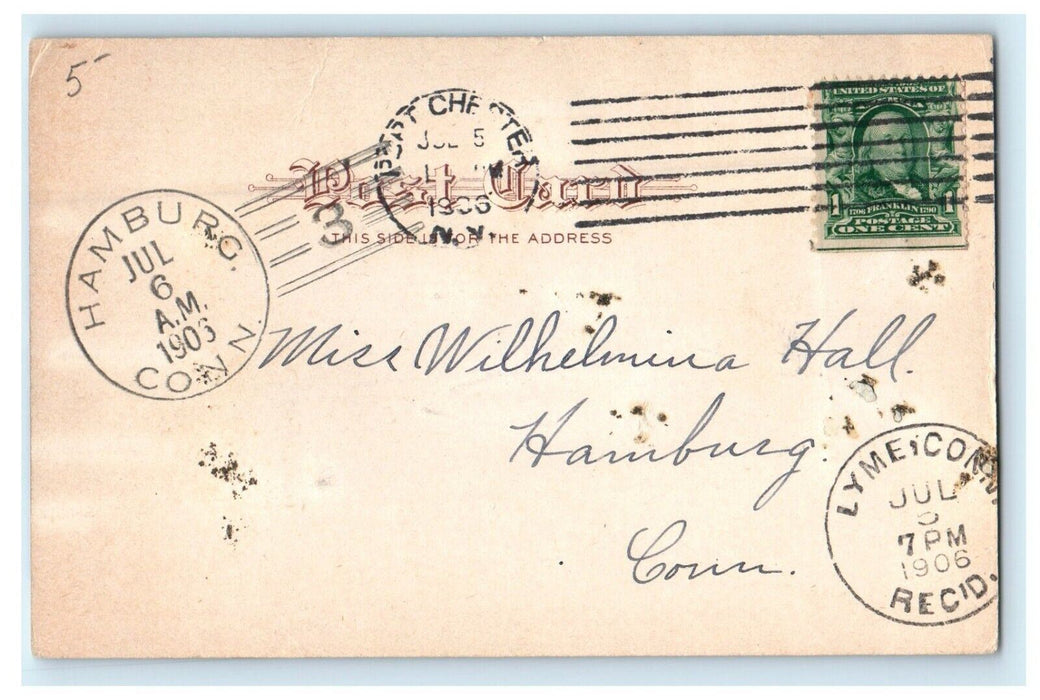 5-
PORT CHESTER
JUL 5
1906
N.Y.
3
Post Card
THIS SIDE IS FOR THE ADDRESS
UNITED STATES OF
1 1
1706 FRANKLIN 1790
POSTAGE
ONE CENT
HAMBURG,
JUL
6
A.M.
1906
CONN
Miss. Wilhelmina Hall.
Hamburg.
Conn.
LYME, CONN.
JUL
7 PM
1906
REC'D.